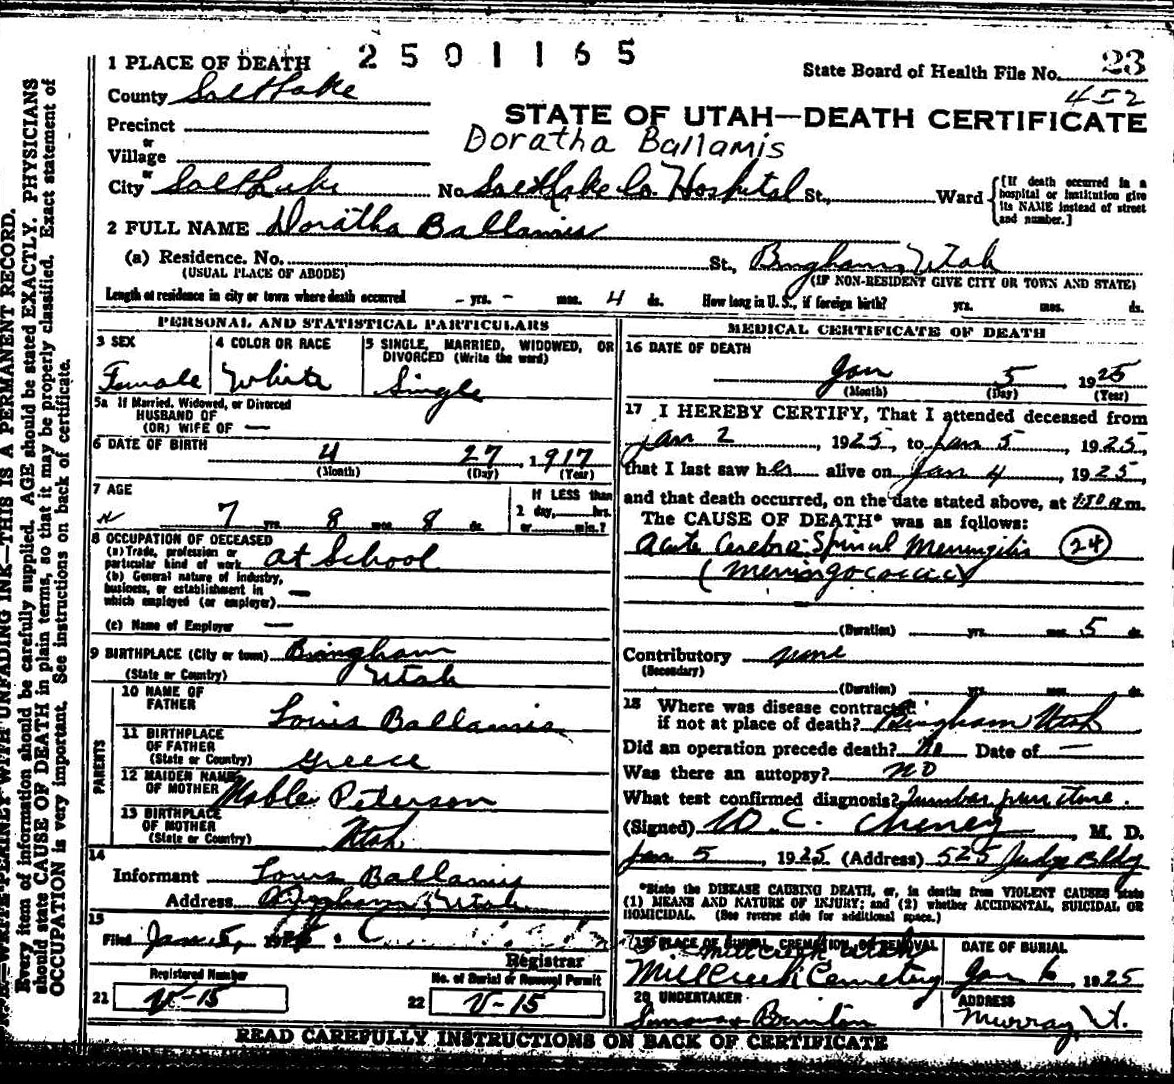 2501165
1 PLACE OF DEATH
State Board of Health File No. 23
452
County Salt Lake
STATE OF UTAH—DEATH CERTIFICATE
Precinct
or
Doratha Ballamis
Village
or
City Salt Lake No. Salt Lake Co. Hospital St., Ward
[If death occurred in a hospital or institution give its NAME instead of street and number.]
2 FULL NAME Doratha Ballamis
(a) Residence. No. St., Bingham, Utah
(USUAL PLACE OF ABODE) (IF NON-RESIDENT GIVE CITY OR TOWN AND STATE)
Length of residence in city or town where death occurred - yrs. - mos. 4 ds. How long in U. S., if foreign birth? yrs. mos. ds.
PERSONAL AND STATISTICAL PARTICULARS
3 SEX Female
4 COLOR OR RACE White
5 SINGLE, MARRIED, WIDOWED, OR DIVORCED (Write the word) Single
5a If Married, Widowed, or Divorced
HUSBAND OF
(OR) WIFE OF —
6 DATE OF BIRTH 4 27, 1917
(Month) (Day) (Year)
7 AGE
7 yrs. 8 mos. 8 ds.
If LESS than
1 day, hrs.
or min.?
8 OCCUPATION OF DECEASED
(a) Trade, profession or
particular kind of work at School
(b) General nature of industry,
business, or establishment in
which employed (or employer) —
(c) Name of Employer —
9 BIRTHPLACE (City or town) Bingham
(State or Country) Utah
PARENTS
10 NAME OF
FATHER Louis Ballamis
11 BIRTHPLACE
OF FATHER
(State or Country) Greece
12 MAIDEN NAME
OF MOTHER Mable Peterson
13 BIRTHPLACE
OF MOTHER
(State or Country) Utah
14
Informant Louis Ballamis
Address Bingham, Utah
15
Filed Jan 5,
Registrar
Registered Number
No. of Burial or Removal Permit
21 V-15
22 V-15
MEDICAL CERTIFICATE OF DEATH
16 DATE OF DEATH
Jan 5, 1925
(Month) (Day) (Year)
17 I HEREBY CERTIFY, That I attended deceased from
Jan 2, 1925, to Jan 5, 1925,
that I last saw her alive on Jan 4, 1925,
and that death occurred, on the date stated above, at a.m.
The CAUSE OF DEATH* was as follows:
Acute Cerebro-Spinal Meningitis (24)
(Meningococcic)
(Duration) yrs. mos. 5 ds.
Contributory none
(Secondary)
(Duration) yrs. mos. ds.
18 Where was disease contracted
if not at place of death? Bingham, Utah
Did an operation precede death? No Date of —
Was there an autopsy? no
What test confirmed diagnosis? Lumbar puncture.
(Signed) W. C. Cheney, M. D.
Jan 5, 1925 (Address) 525 Judge Bldg
*State the DISEASE CAUSING DEATH, or, in deaths from VIOLENT CAUSES state
(1) MEANS AND NATURE OF INJURY; and (2) whether ACCIDENTAL, SUICIDAL OR
HOMICIDAL. (See reverse side for additional space.)
19 PLACE OF BURIAL, CREMATION, OR REMOVAL
Millcreek Utah
Mill Creek Cemetery
DATE OF BURIAL
Jan 6, 1925
20 UNDERTAKER
ADDRESS
Murray, Ut.
READ CAREFULLY INSTRUCTIONS ON BACK OF CERTIFICATE
WRITE PERINLY WITH UNFADING INK—THIS IS A PERMANENT RECORD.
Every item of information should be carefully supplied. AGE should be stated EXACTLY. PHYSICIANS
should state CAUSE OF DEATH in plain terms, so that it may be properly classified. Exact statement of
OCCUPATION is very important. See instructions on back of certificate.